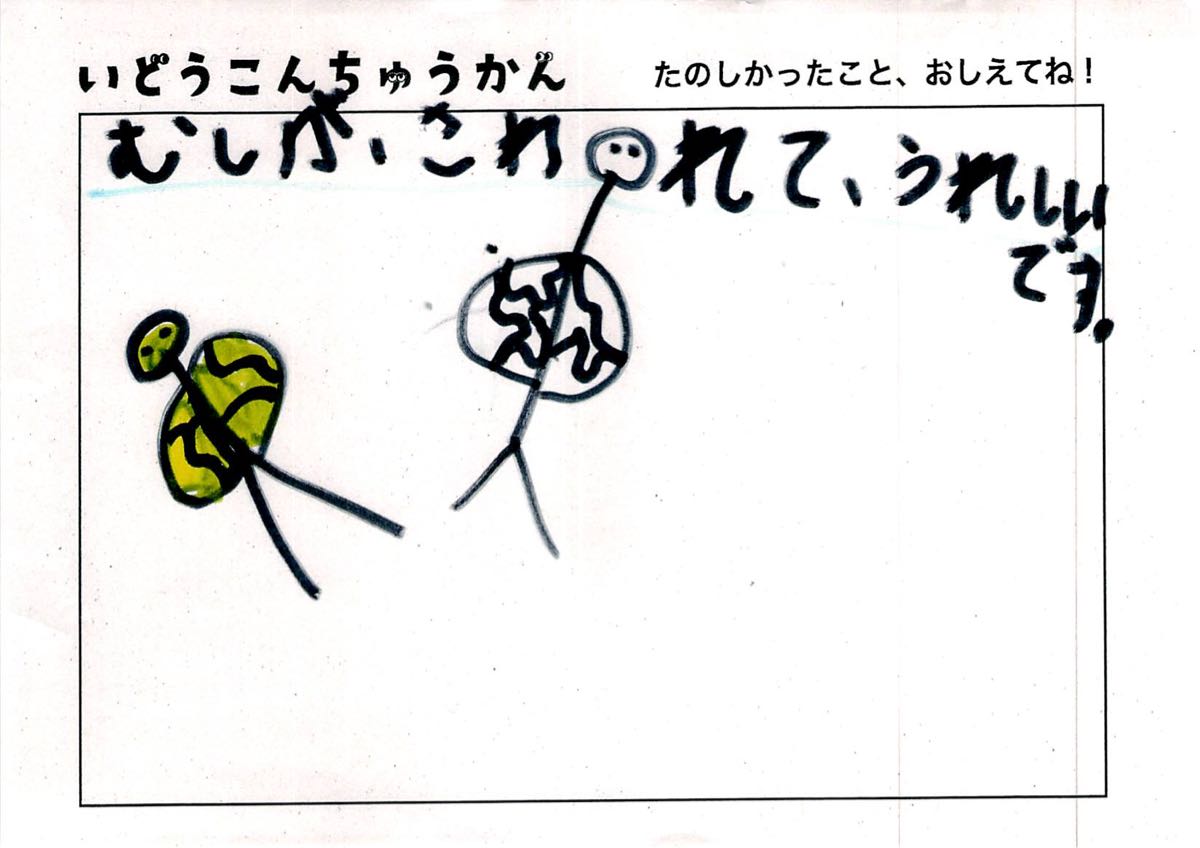 いどうこんちゅうかん
たのしかったこと、おしえてね！
むしが、さわれて、うれしい
です。